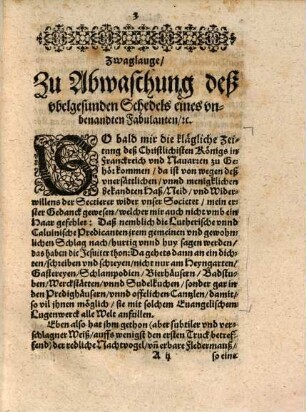 3
Zwaglauge/
Zu Abwaschung deß
vbelgesunden Schedels eines vn-
benandten Fabulanten/ꝛc.
SO bald mir die klägliche Zei-
tung deß Christlichisten Königs in
Franckreich vnd Nauarren zu Ge-
hör kommen / da ist von wegen deß
vnersättlichen / vnnd menigklichen
bekandten Haß/ Neid / vnd Wider-
willens der Sectierer wider vnser Societet / mein er-
ster Gedanck gewesen/ welcher mir auch nicht vmb ein
Haar gefehlet: Daß nemblich die Lutherische vnnd
Caluinische Predicanten jrem gemeinen vnd gewohn-
lichen Schlag nach/ hurtig vnnd huy sagen werden/
das haben die Jesuiter thon: Da gehets dann an ein dich-
ten/ schreiben vnd schreyen/ nicht nur am Heyngarten/
Gastereyen/ Schlampodien / Bierhäusern / Badstu-
ben/ Werckstätten/ vnnd Sudelkuchen / sonder gar in
den Predighäusern/ vnnd offelichen Cantzlen / damit/
so vil jhnen möglich / sie mit solchem Euangelischem
Lugenwerck alle Welt anfüllen.
Eben also hat jhm gethon (aber subtiler vnd ver-
schlagner Weiß/ auffs wenigst den ersten Truck betref-
fend) der redliche Nachtvogel/ vñ erbare Fledermauß/
A ij so eins